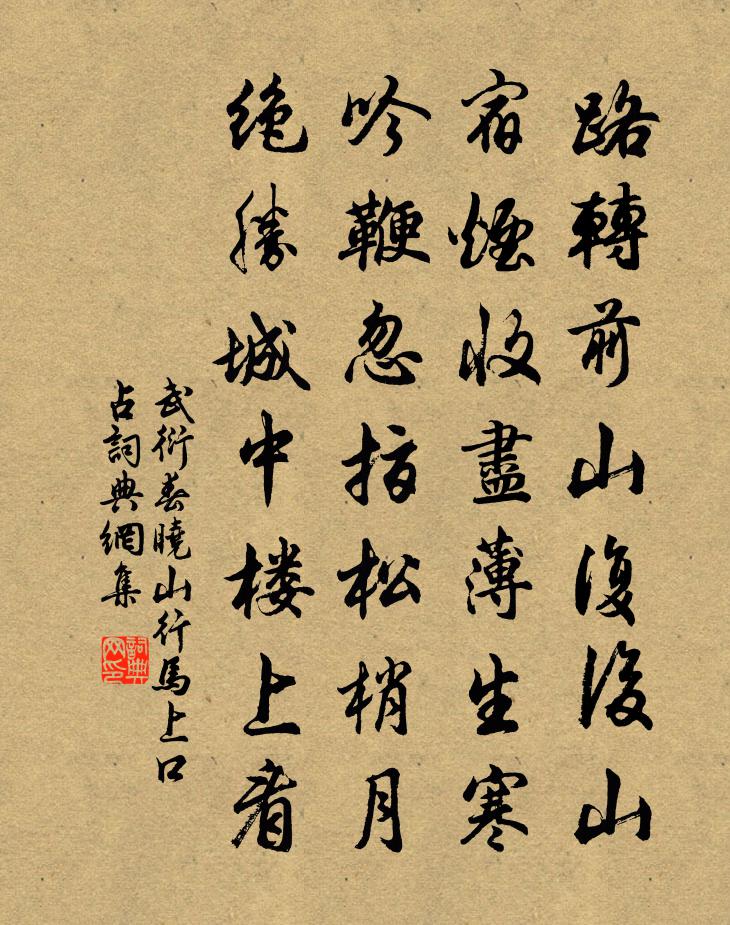 路轉前山復後山
宿煙收盡薄生寒
吟鞭忽指松梢月
绝勝城中楼上看
武衍春曉山行馬上口
占詞典網集
詞典网印